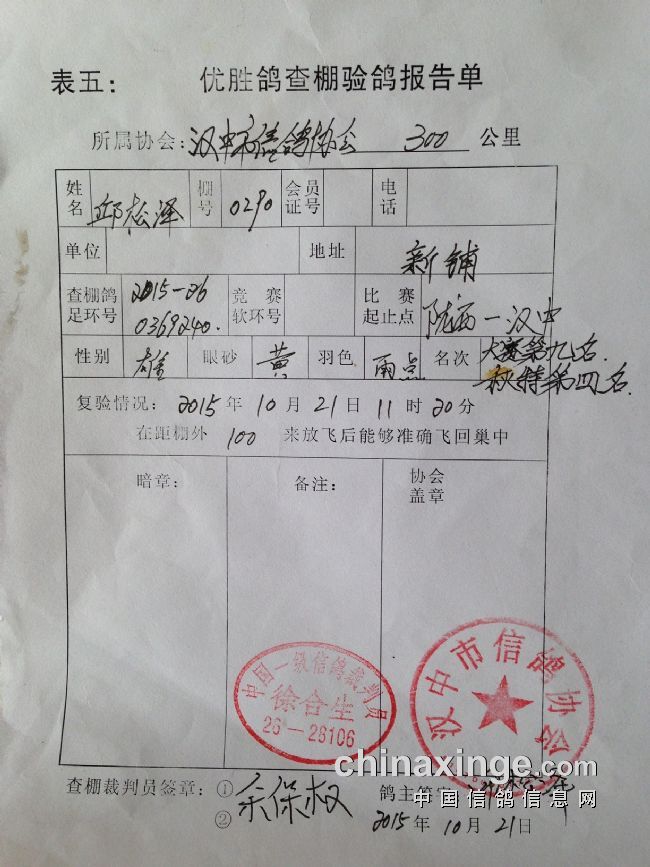 表五： 优胜鸽查棚验鸽报告单
所属协会：汉中市信鸽协会 300 公里
姓名 邱松泽 棚号 0290 会员证号 电话
单位 地址 新铺
查棚鸽足环号 2015-26 0369240. 竞赛软环号 比赛起止点 陇西-汉中
性别 雄 眼砂 黄 羽色 雨点 名次 大赛第九名.
秋特第四名.
复验情况： 2015 年 10 月 21 日 11 时 20 分
在距棚外 100 来放飞后能够准确飞回巢中
暗章： 备注： 协会盖章
中国一级信鸽裁判员
徐合生
26-26106
汉中市信鸽协会
chinaxinge.com
中国信鸽信息网
查棚裁判员签章：① 余保权 鸽主签字
②
2015 年 10 月 21 日